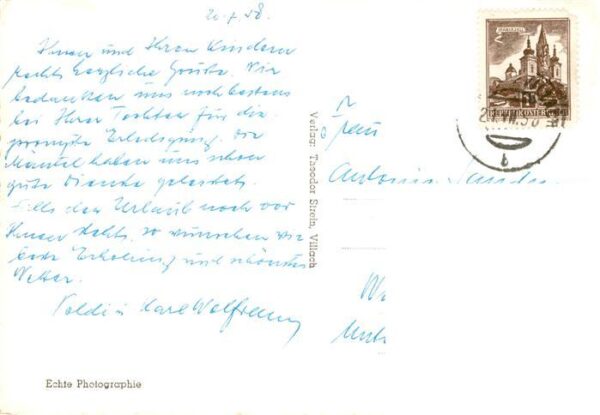 20.7.58.
Ihnen und Ihren Kindern
recht herzliche Grüße. Wir
bedanken uns nochbestens
bei Ihrer Tochter für die
prompte Erledigung. Die
Mäntel haben uns schon
gute Dienste geleistet.
Falls der Urlaub noch vor
Ihnen steht, so wünschen wir
gute Erholung und schönes
Wetter.
Karl Wolfram
Echte Photographie
Verlag: Theodor Strein, Villach
Frau
Antonia
MARIAZELL
2
REPUBLIK ÖSTERREICH
b